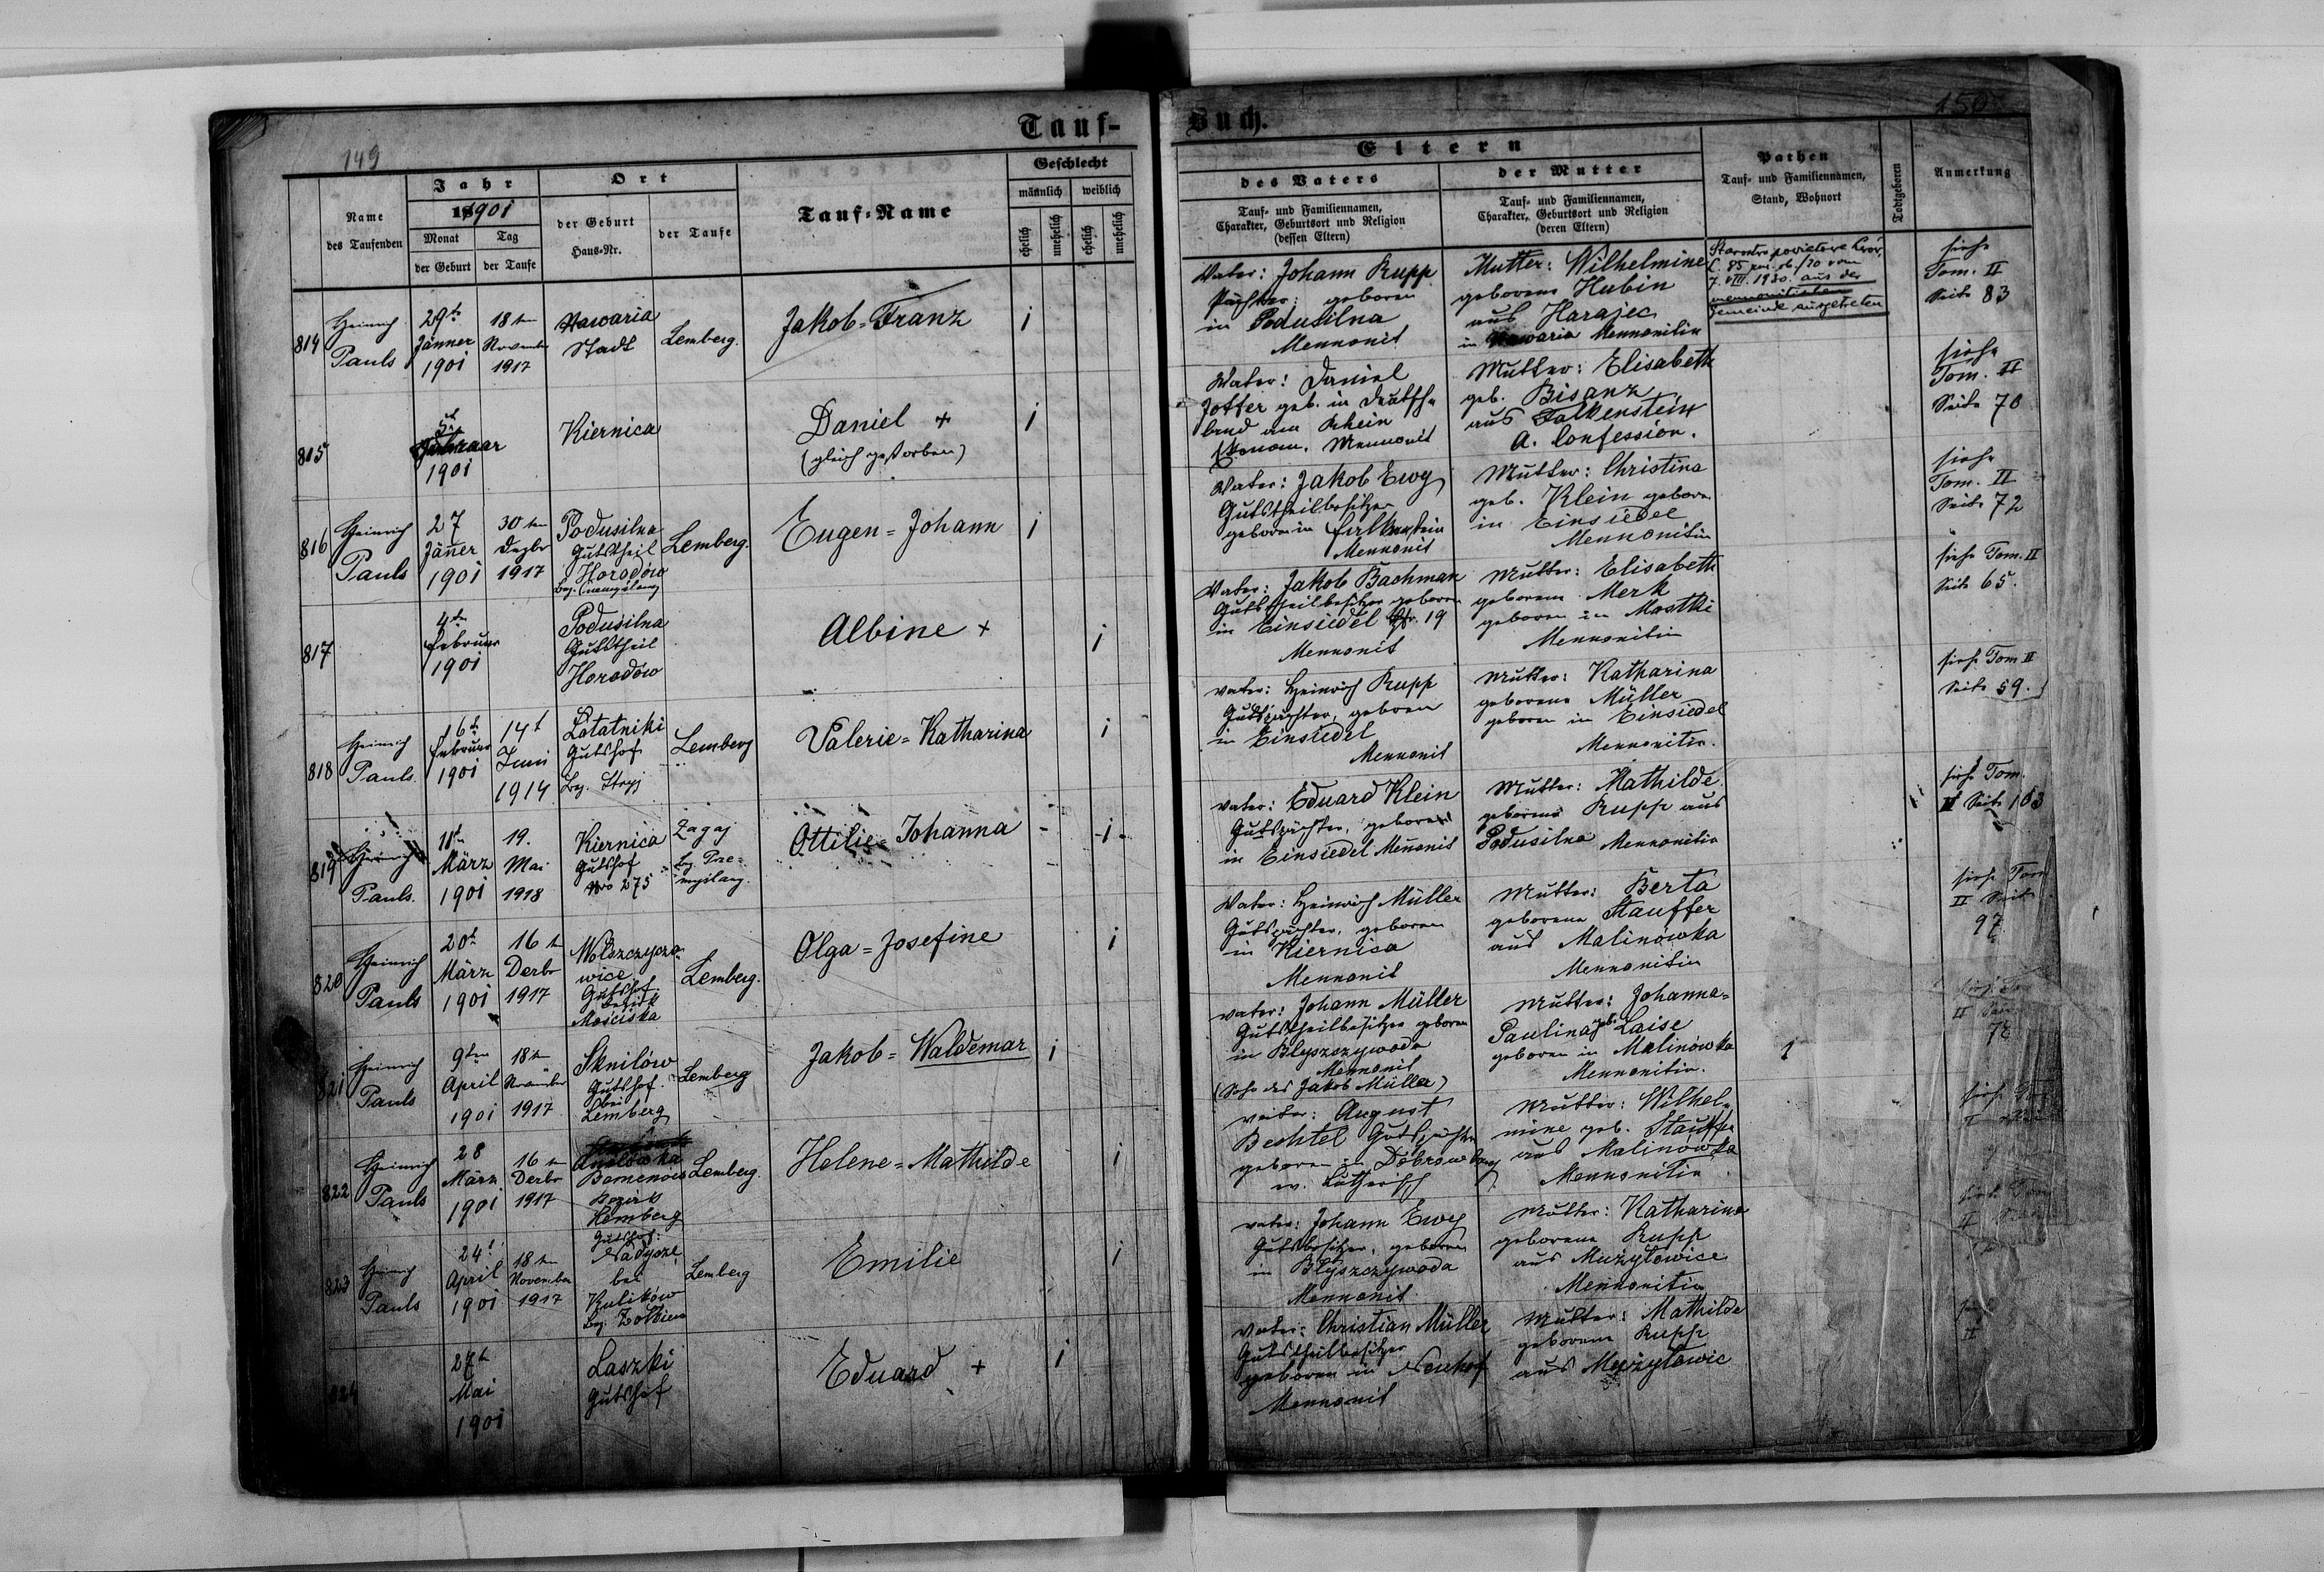 149
Tauf-
Name
des Taufenden
Jahr
1901
Monat
der Geburt
Tag
der Taufe
Ort
der Geburt
Haus-Nr.
der Taufe
Tauf-Name
Geschlecht
männlich
weiblich
ehelich
unehelich
ehelich
unehelich
814
Heinrich
Pauls
29t
Jänner
1901
18ten
November
1917
Nawaria
Stadt
Lemberg.
Jakob=Franz
1
815
5t
1901
Kiernica
Daniel +
(gleich gestorben)
1
816
Heinrich
Pauls
27
Jäner
1901
30ten
Dezbr
1917
Podusilna
Gutstheil
Horodow
Lemberg.
Eugen=Johann
1
817
4ten
Februar
1901
Podusilna
Gutstheil
Horodow
Albine +
1
818
Heinrich
Pauls.
16t
Februar
1901
14t
Juni
1914
Gutshof
Bez. Stryj
Lemberg
Valerie=Katharina
1
819
Heinrich
Pauls.
11ten
März
1901
19.
Mai
1918
Kiernica
Gutshof
Nro 275
Zagaj
Bez. Prze=
myslany.
Ottilie=Johanna
1
820
Heinrich
Pauls
20t
März
1901
16ten
Derbr
1917
wice
Gutshof
Bezirk
Mosciska
Lemberg.
Olga=Josefine
1
821
Heinrich
Pauls
9ten
April
1901
18ten
November
1917
Sknilów
Gutshof
bei
Lemberg
Lemberg
Jakob=Waldemar
1
822
Heinrich
Pauls
28
März
1901
16ten
Derbr
1917
Bezirk
Lemberg
Lemberg.
Helene=Mathilde
1
823
Heinrich
Pauls
24t
April
1901
18ten
November
1917
Gutshof:
Nadycze
bei
Kulików
Lemberg
Emilie
1
824
27t
Mai
1901
Laszki
Gutshof
Eduard +
1
Buch.
150
Eltern
des Vaters
Tauf- und Familiennamen,
Charakter, Geburtsort und Religion
(dessen Eltern)
der Mutter
Tauf- und Familiennamen,
Charakter, Geburtsort und Religion
(deren Eltern)
Pathen
Tauf- und Familiennamen,
Stand, Wohnort
Todtgeboren
Anmerkung
Vater: Johann Rupp
Pächter; geboren
in Podusilna
Mennonit
Mutter: Wilhelmine
geborene Hubin
aus Harajec
in Nawaria Mennonitin
7. VIII. 1930. aus der
mennonitischen
Gemeinde ausgetreten
siehe
Tom. II
Seite 83
Vater: Daniel
Jotter geb. in Deutsch=
land am Rhein
Ekonom. Mennonit
Mutter: Elisabeth
geb. Bisanz
aus Falkenstein
A. Confession.
siehe
Tom. II
Seite 70
Vater: Jakob Ewy
Gutstheilbesitzer
geboren in Falkenstein
Mennonit
Mutter: Christina
geb. Klein geboren
in Einsiedel
Mennonitin
siehe
Tom. II
Seite 72
Vater: Jakob Bachman
Gutstheilbesitzer geboren
in Einsiedel Nr. 19
Mennonit
Mutter: Elisabeth
geborene Merk
geboren in Mostki
Mennonitin
siehe Tom. II
Seite 65.
Vater: Heinrich Rupp
Gutspächter, geboren
in Einsiedel
Mennonit
Mutter: Katharina
geborene Müller
geboren in Einsiedel
Mennonitin.
siehe Tom II
Seite 59.
Vater: Eduard Klein
Gutspächter, geboren
in Einsiedel Mennonit
Mutter: Mathilde
geborene Rupp aus
Podusilna Mennonitin
siehe Tom.
II Seite 103
Vater: Heinrich Müller
Gutspächter, geboren
in Kiernica
Mennonit
Mutter: Berta
geborene Stauffer
aus Malinówka
Mennonitin
siehe Tom
II Seite
97
Vater: Johann Müller
Gutstheilbesitzer geboren
in Blyszczywoda
Mennonit
(Sohn des Jakob Müller)
Mutter: Johanna=
Paulina geb. Laise
geboren in Malinówka
Mennonitin.
1
II
Vater: August
Bechtel Gutspächter
geboren in
ev. Lutherisch
Mutter: Wilhel=
mine geb. Stauffer
aus Malinówka
Mennonitin
Vater: Johann Ewy
Gutsbesitzer, geboren
in Blyszczywoda
Mennonit
Mutter: Katharina
geborene Rupp
aus Muzylowice
Mennonitin
II
Vater: Christian Müller
Gutstheilbesitzer
geboren in Neuhof
Mennonit
Mutter: Mathilde
geborene Rupp
aus Muzylowic
II